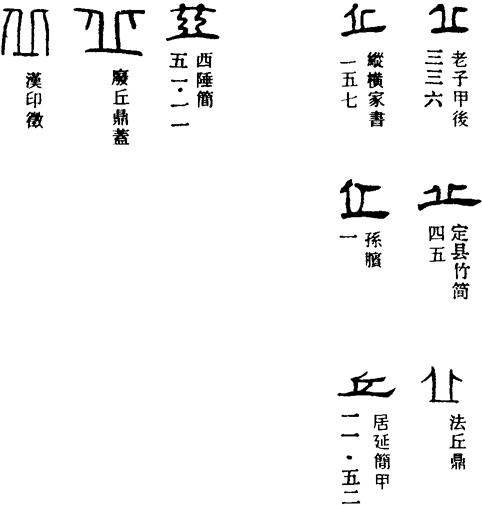 老子甲後
三三六
定县竹简
四五
法丘鼎
縱橫家書
一五七
孫臏
一
居延簡甲
一一·五二
西陲簡
五一·一一
廢丘鼎蓋
漢印徵